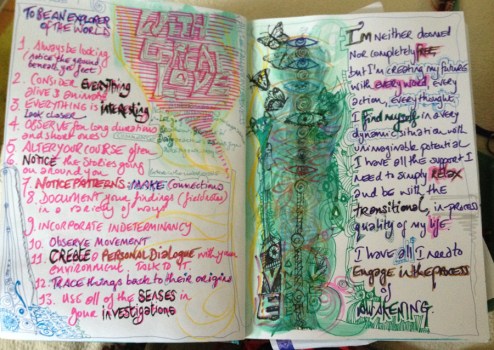 TO BE AN EXPLORER
OF THE WORLD
1. Always be looking
(notice the ground
beneath yr feet)
2. CONSIDER Everything
alive & animate
3. EVERYTHING IS interesting
Look closer
4. OBSERVE for long durations
and short ones
5. ALTER YOUR COURSE often
6. NOTICE the Stories going
on around you
7. NOTICE PATTERNS: MAKE Connections
8. DOCUMENT your findings (field notes)
in a variety of ways
9. INCORPORATE INDETERMINANCY
10. OBSERVE MOVEMENT
11. CREATE a PERSONAL DIALOGUE with your
environment. TALK TO IT.
12. TRACE things back to their origins
13. USE all of the SENSES in
your investigations
WITH
GREAT
LOVE
I'M Neither doomed
Nor completely FREE
but I'm creating my future
with every word, every
action, every thought.
I find myself in a very
dynamic situation with
unimaginable potential
I have all the support I
need to simply RELAX
and be with the
transitional, in-process
quality of my life.
I have all I need to
Engage in the PROCESS
of
AWAKENING.